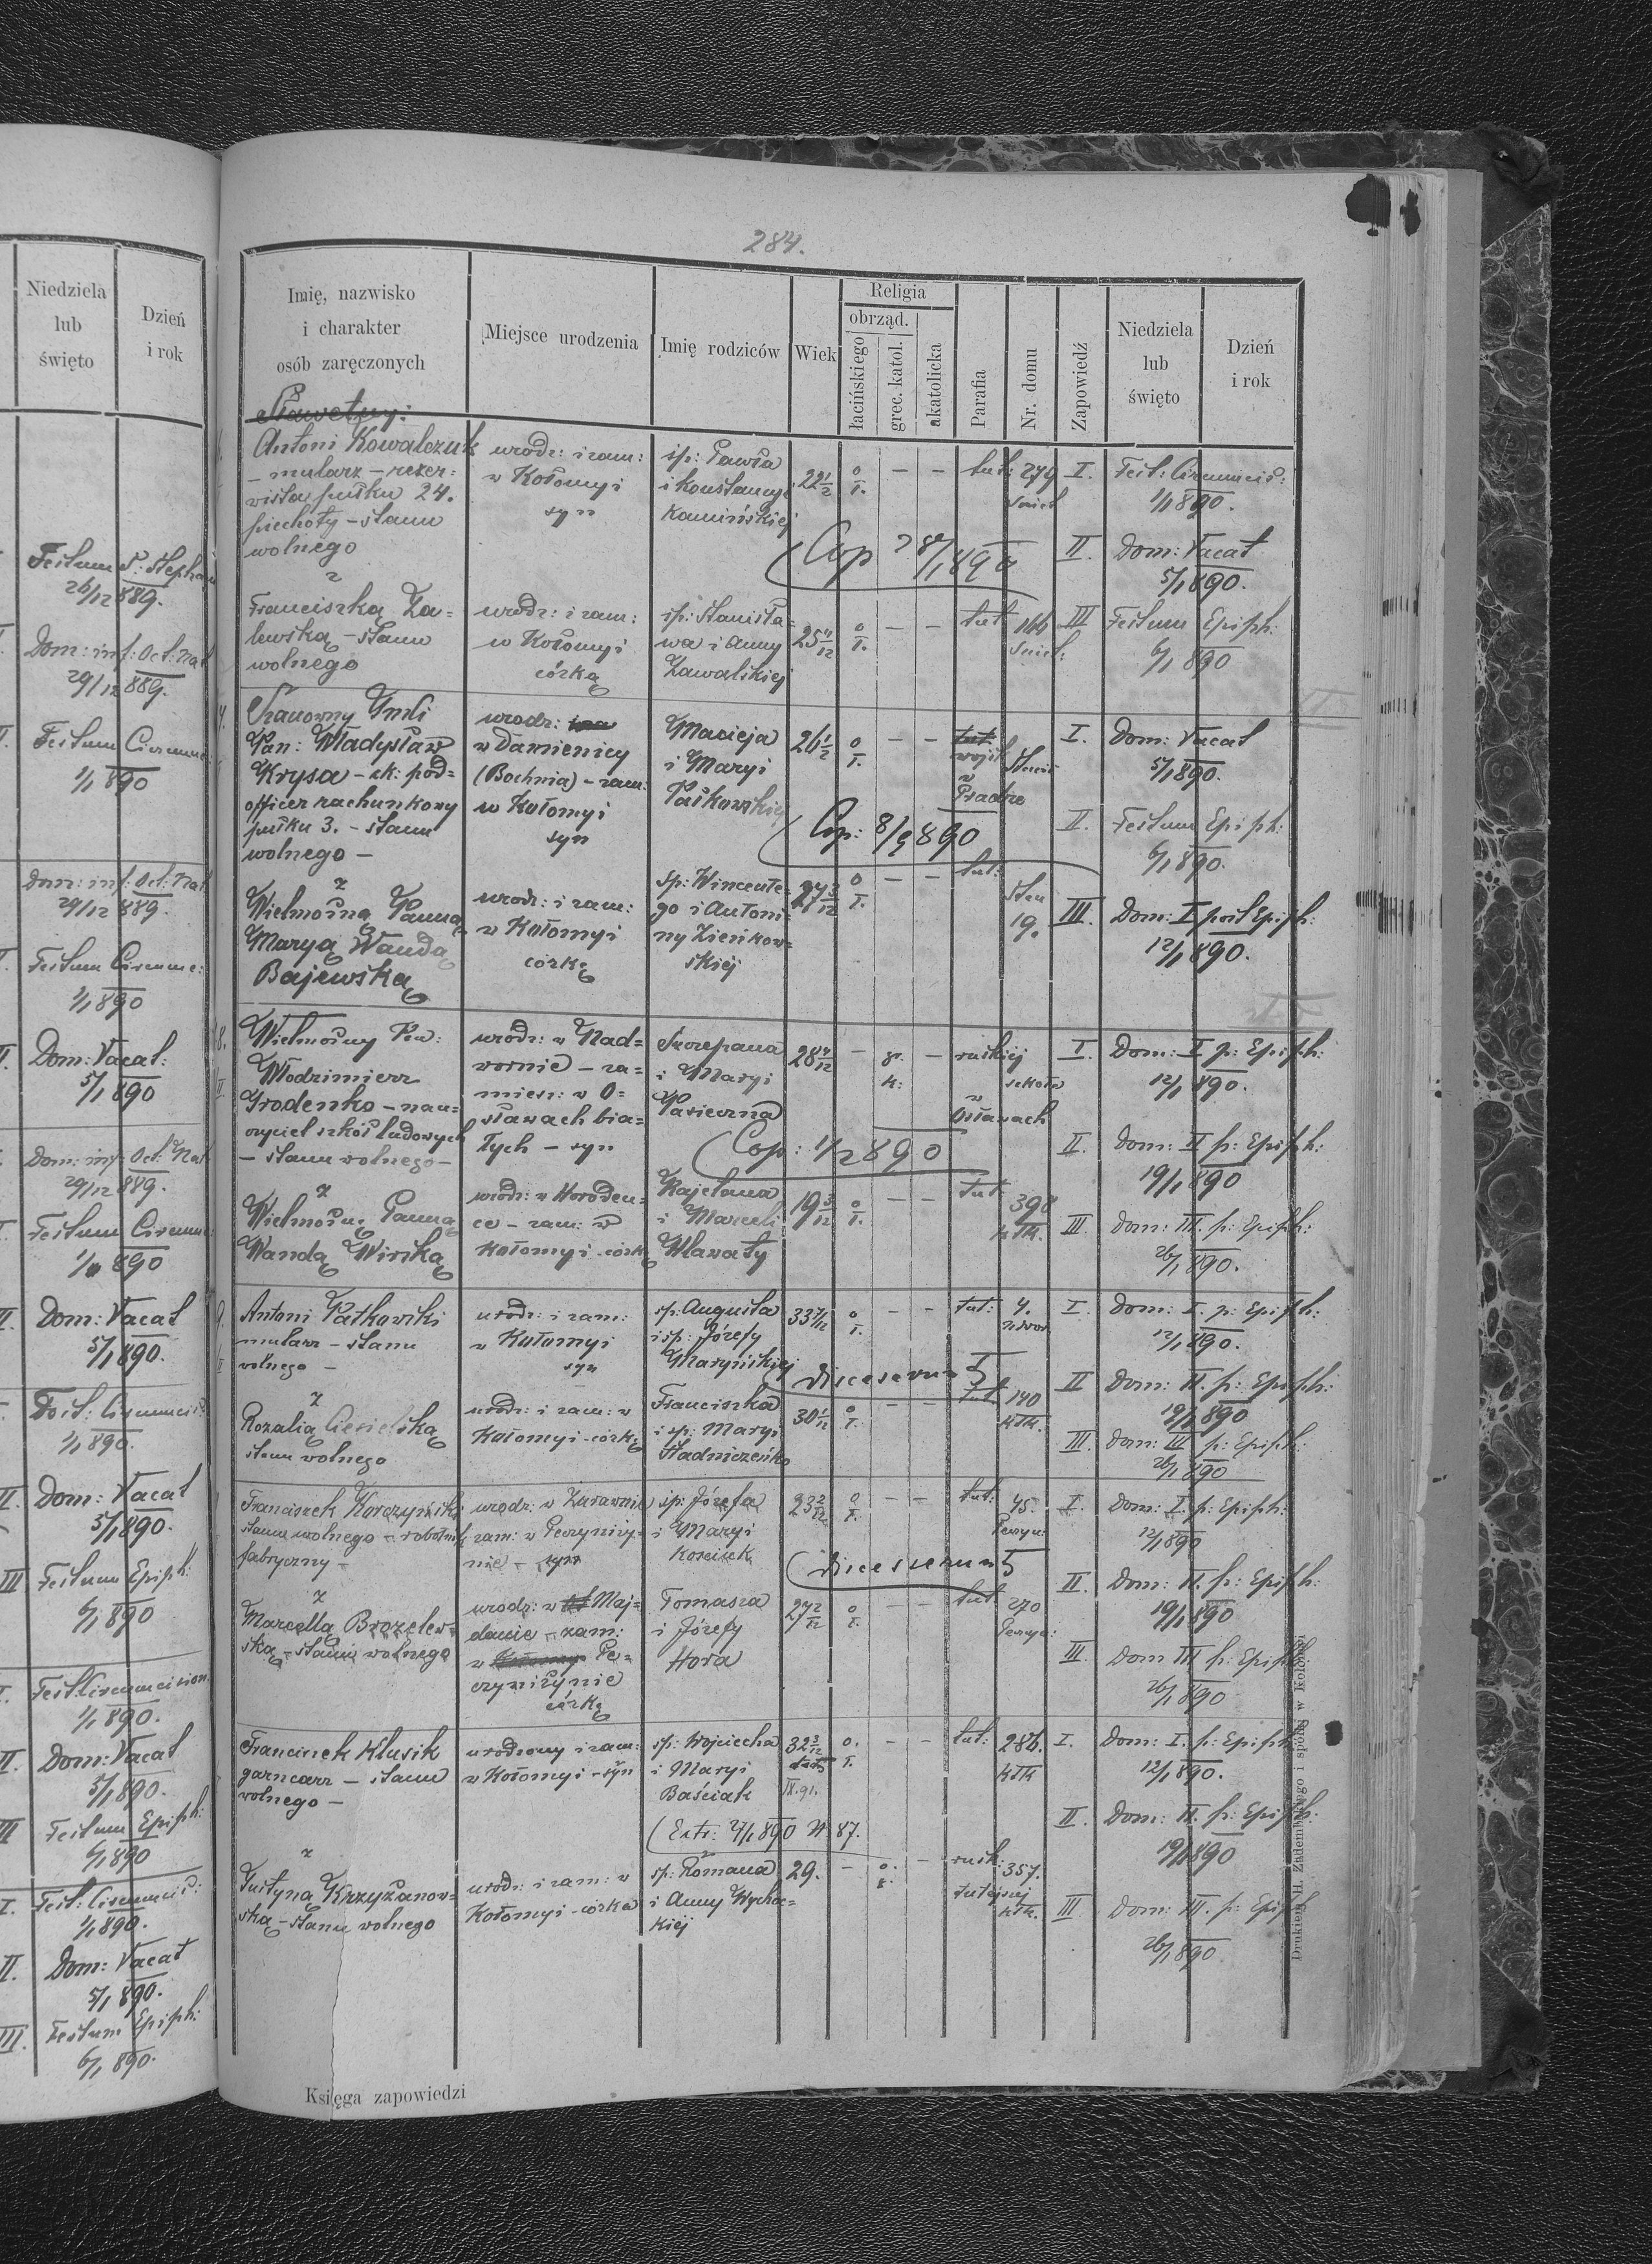 Niedziela
lub
święto
Dzień
i rok
Festum S: Stephan
26/12 889.
Dom: inf: Oct: Nat
29/12 889.
Festum Circumc
1/1 890
Dom: inf: Oct: Nat
29/12 889.
Festum Circumc:
1/1 890
Dom: Vacat:
5/1 890
Dom: inf: Oct: Nat
29/12 889.
Festum Circumc:
1/1 890
Dom: Vacat
5/1 890.
Fest: Circumcis:
1/1 890.
Dom: Vacat
5/1 890.
III Festum Epiph:
6/1 890
I. Fest Circumcision.
1/1 890.
II. Dom: Vacat
5/1 890.
III Festum Epiph:
6/1 890
I. Fest: Circumcis:
1/1 890.
II. Dom: Vacat
5/1 890.
III. Festum Epiph:
6/1 890.
284.
Imię, nazwisko
i charakter
osób zaręczonych
Miejsce urodzenia
Imię rodziców
Wiek
Religia
obrząd.
łacińskiego
grec. katol.
akatolicka
Parafia
Nr. domu
Zapowiedź
Niedziela
lub
święto
Dzień
i rok
Sławetny:
Antoni Kowalczuk
– mularz – rezer=
wista pułku 24.
piechoty – stanu
wolnego
urodz: i zam:
w Kołomyi
syn
sp: Pawła
i Konstancyi
Kamińskiej
22 1/2
o
ł.
– –
tut: 279
I. Fest: Circumcis:
1/1 890.
(Cop 28/1 890
II. Dom: Vacat
5/1 890.
z
Franciszką Za=
lewską – stanu
wolnego
urodz: i zam:
w Kołomyi
córką
sp: Stanisła=
wa i Anny
Zawalskiej
25 4/12
o
ł.
– –
tut 166
III Festum Epiph:
6/1 890
Szanowny
Pan: Władysław
Krysa – ck: pod=
officer rachunkowy
pułku 3. – stanu
wolnego –
urodz:
w Damienicy
(Bochnia) – zam:
w Kołomyi
syn
Macieja
i Maryi
Paskowskiej
26 1/2
o
ł.
– –
tut
wojsk
w
I. Dom: Vacat
5/1 890.
(Cop: 8/2 890
II. Festum Epiph:
6/1 890.
z
Wielmożną Panną
Maryą Wandą
Bajewską
urodz: i zam:
w Kołomyi
córką
sp: Wincente=
go i Antoni=
ny Zieńkow=
skiéj
27 3/12
o
ł.
– –
tut:
19.
III. Dom: I post Epiph:
12/1 890.
8.
Wielmożny Pan:
Włodzimierz
Grodenko – nau=
czyciel szkół ludowych
– stanu wolnego –
urodz: w Nad=
wornie – za=
miesz: w O=
sławach bia=
łych – syn
Szczepana
i Maryi
Pasieczna
28 4/12
– g. –
k:
ruskiej
w
Osławach
szkoła
I. Dom: I p: Epiph:
12/1 890.
(Cop: 1/2 890
II. Dom: II p: Epiph:
19/1 890
z
Wielmożn: Panną
Wandą Wirską
urodz: w Horoden=
ce – zam: w
Kołomyi – córką
Kajetana
i Marceli
Hlawaty
19 3/12
o
ł.
– –
tut 398
III. Dom: III. p: Epiph:
26/1 890.
9.
Antoni Patkowski
mularz – stanu
wolnego –
urodz: i zam:
w Kołomyi
syn
sp: Augusta
i sp: Józefy
Maryńskiej
33 7/12
o
ł.
– –
tut: 4.
I. Dom: I. p: Epiph:
12/1 890.
(Discesserunt
II Dom: II. p: Epiph:
19/1 890
z
Rozalią Ciesielską
stanu wolnego
urodz: i zam: w
Kołomyi – córką
Franciszka
i sp: Maryi
Stadniczeńko
30 1/12
o
ł.
– –
tut 140
III. Dom: III p: Epiph:
26/1 890
Franciszek Korczyński
stanu wolnego – robotnik
fabryczny –
urodz: w Żurawnie
zam: w Peczyniży=
nie – syn
sp: Józefa
i Maryi
Koscisek
23 2/12
o
ł.
– –
tut: 45.
Peczyn:
I. Dom: I. p: Epiph:
12/1 890
(Discesserunt
II. Dom: II. p: Epiph:
19/1 890
z
Marcellą Brozelew=
ską – stanu wolnego
urodz: w Maj=
danie – zam:
w Pe=
czyniżynie
córką
Tomasza
i Józefy
Hora
27 2/12
o
ł.
– –
tut 270
Peczyn:
III. Dom III p: Epiph:
26/1 890
Franciszek Klusik
garncarz – stanu
wolnego –
urodzony i zam:
w Kołomyi – syn
sp: Wojciecha
i Maryi
Baściak
32 3/12
o.
ł.
– –
tut: 286.
I. Dom: I. p: Epiph:
12/1 890.
(Extr: 4/1 890 N 87.
II. Dom: II. p: Epiph:
19/1 890
z
Justyną Krzyżanow=
ską – stanu wolnego
urodz: i zam: w
Kołomyi – córka
sp: Romana
i Anny Wychoc=
kiéj
29.
– o. –
g.
rusk:
tutejszej
357.
III. Dom: III. p: Epiph
26/1 890
Księga zapowiedzi
Drukiem H. Zadembskiego i spółki w Kołomyi